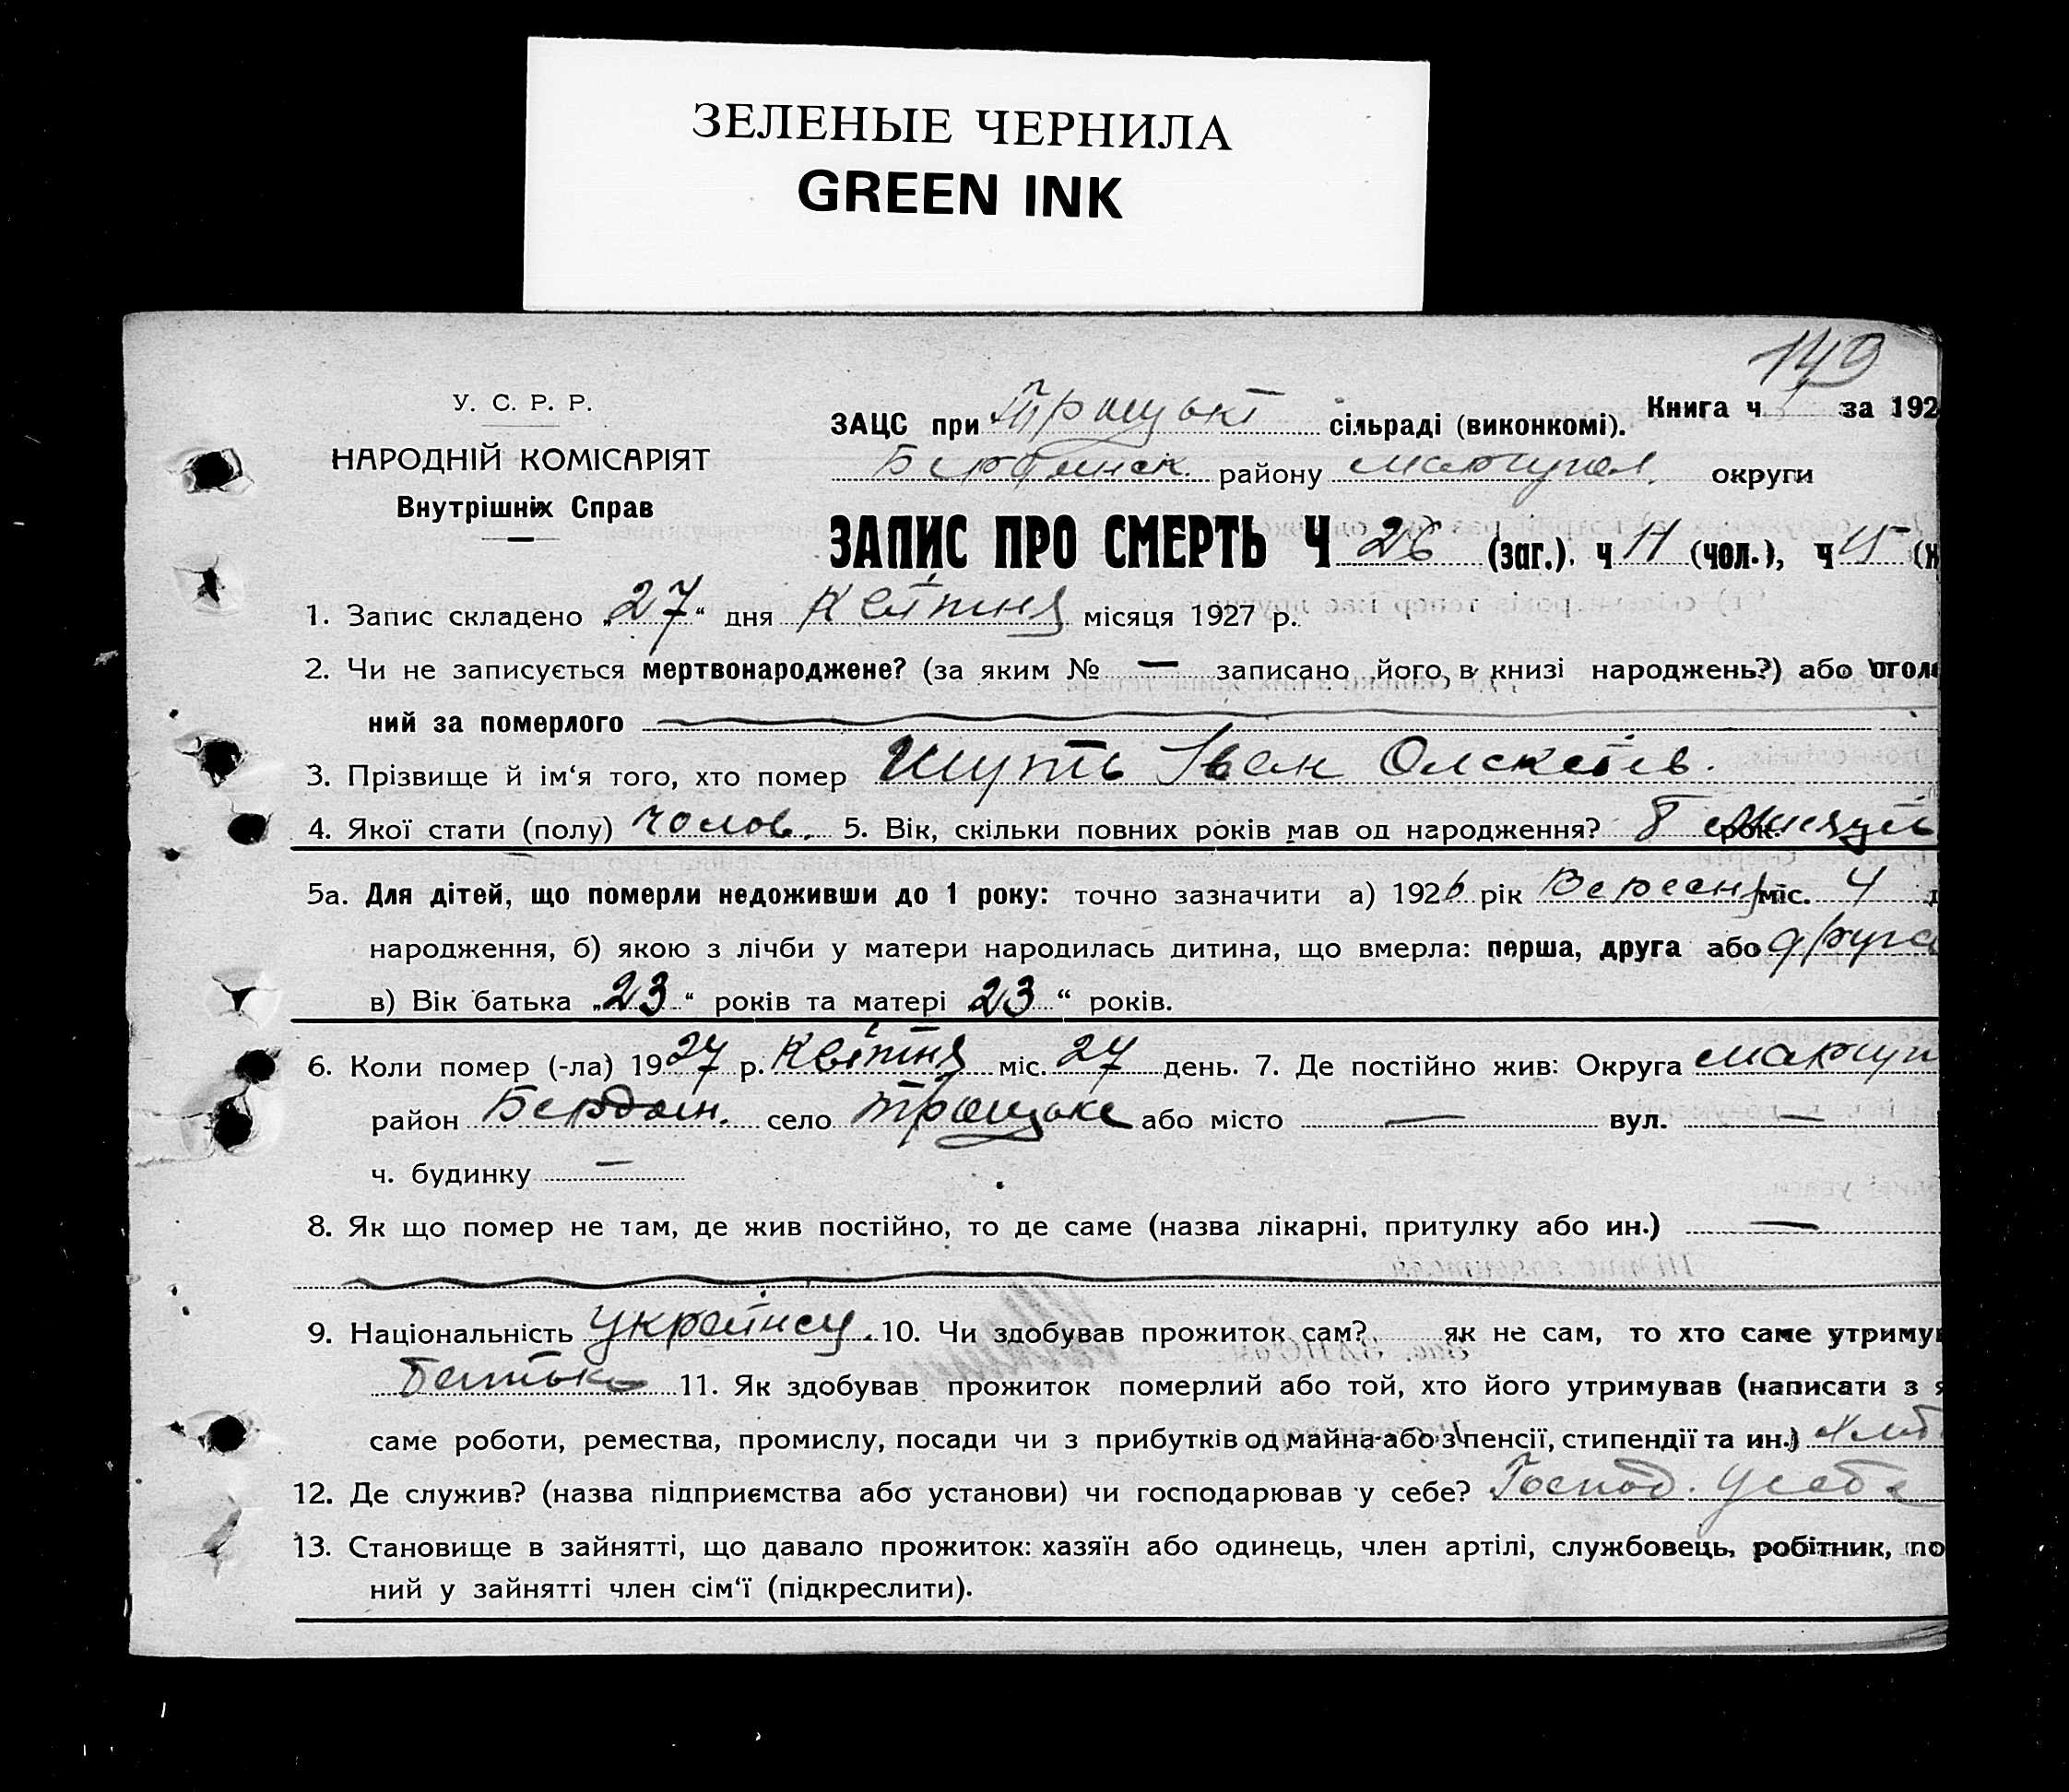 ЗЕЛЕНЫЕ ЧЕРНИЛА
GREEN INK
149
У. С. Р. Р.
НАРОДНІЙ КОМІСАРІЯТ
Внутрішніх Справ
ЗАЦС при Троцькі сільраді (виконкомі). Книга ч за 192
Бердянск. району маріупол. округи
ЗАПИС ПРО СМЕРТЬ Ч 26 (заг.). ч 11 (чол.), ч 15
1. Запис складено „27“ дня Квітня місяця 1927 р.
2. Чи не записується мертвонароджене? (за яким № — записано його в книзі народжень?) або оголе
ний за померлого
3. Прізвище й ім‘я того, хто помер Шуть Іван Олексіїв.
4. Якої стати (полу) чолов. 5. Вік, скільки повних років мав од народження? 8 рок. місяців
5а. Для дітей, що померли недоживши до 1 року: точно зазначити а) 1926 рік Вересня міс. 4
народження, б) якою з лічби у матери народилась дитина, що вмерла: перша, друга або друга
в) Вік батька „23“ років та матері 23“ років.
6. Коли помер (-ла) 1927 р. Квітня міс. 27 день. 7. Де постійно жив: Округа маріуп
район Бердян. село Троцьке або місто — вул. —
ч. будинку —
8. Як що помер не там, де жив постійно, то де саме (назва лікарні, притулку або ин.) —
9. Національність українец. 10. Чи здобував прожиток сам? як не сам, то хто саме утриму
Батько 11. Як здобував прожиток померлий або той, хто його утримував (написати з я
саме роботи, ремества, промислу, посади чи з прибутків од майна або з пенсії, стипендії та ин.) хліб
12. Де служив? (назва підприємства або установи) чи господарював у себе? Господ. у себе
13. Становище в зайнятті, що давало прожиток: хазяїн або одинець, член артілі, службовець, робітник, по
ний у зайнятті член сім‘ї (підкреслити).